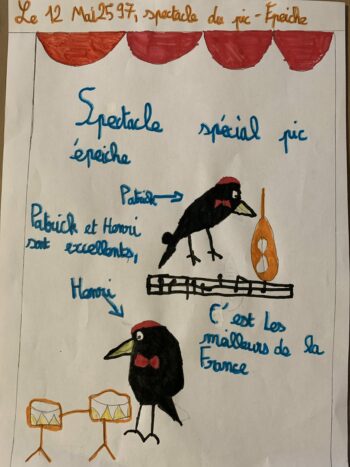 Le 12 Mai 2597, spectacle du pic-Épeiche
Spectacle spécial pic
épeiche
Patrick
Patrick et Henri
sont excellents,
Henri
C'est Les
meilleurs de la
France